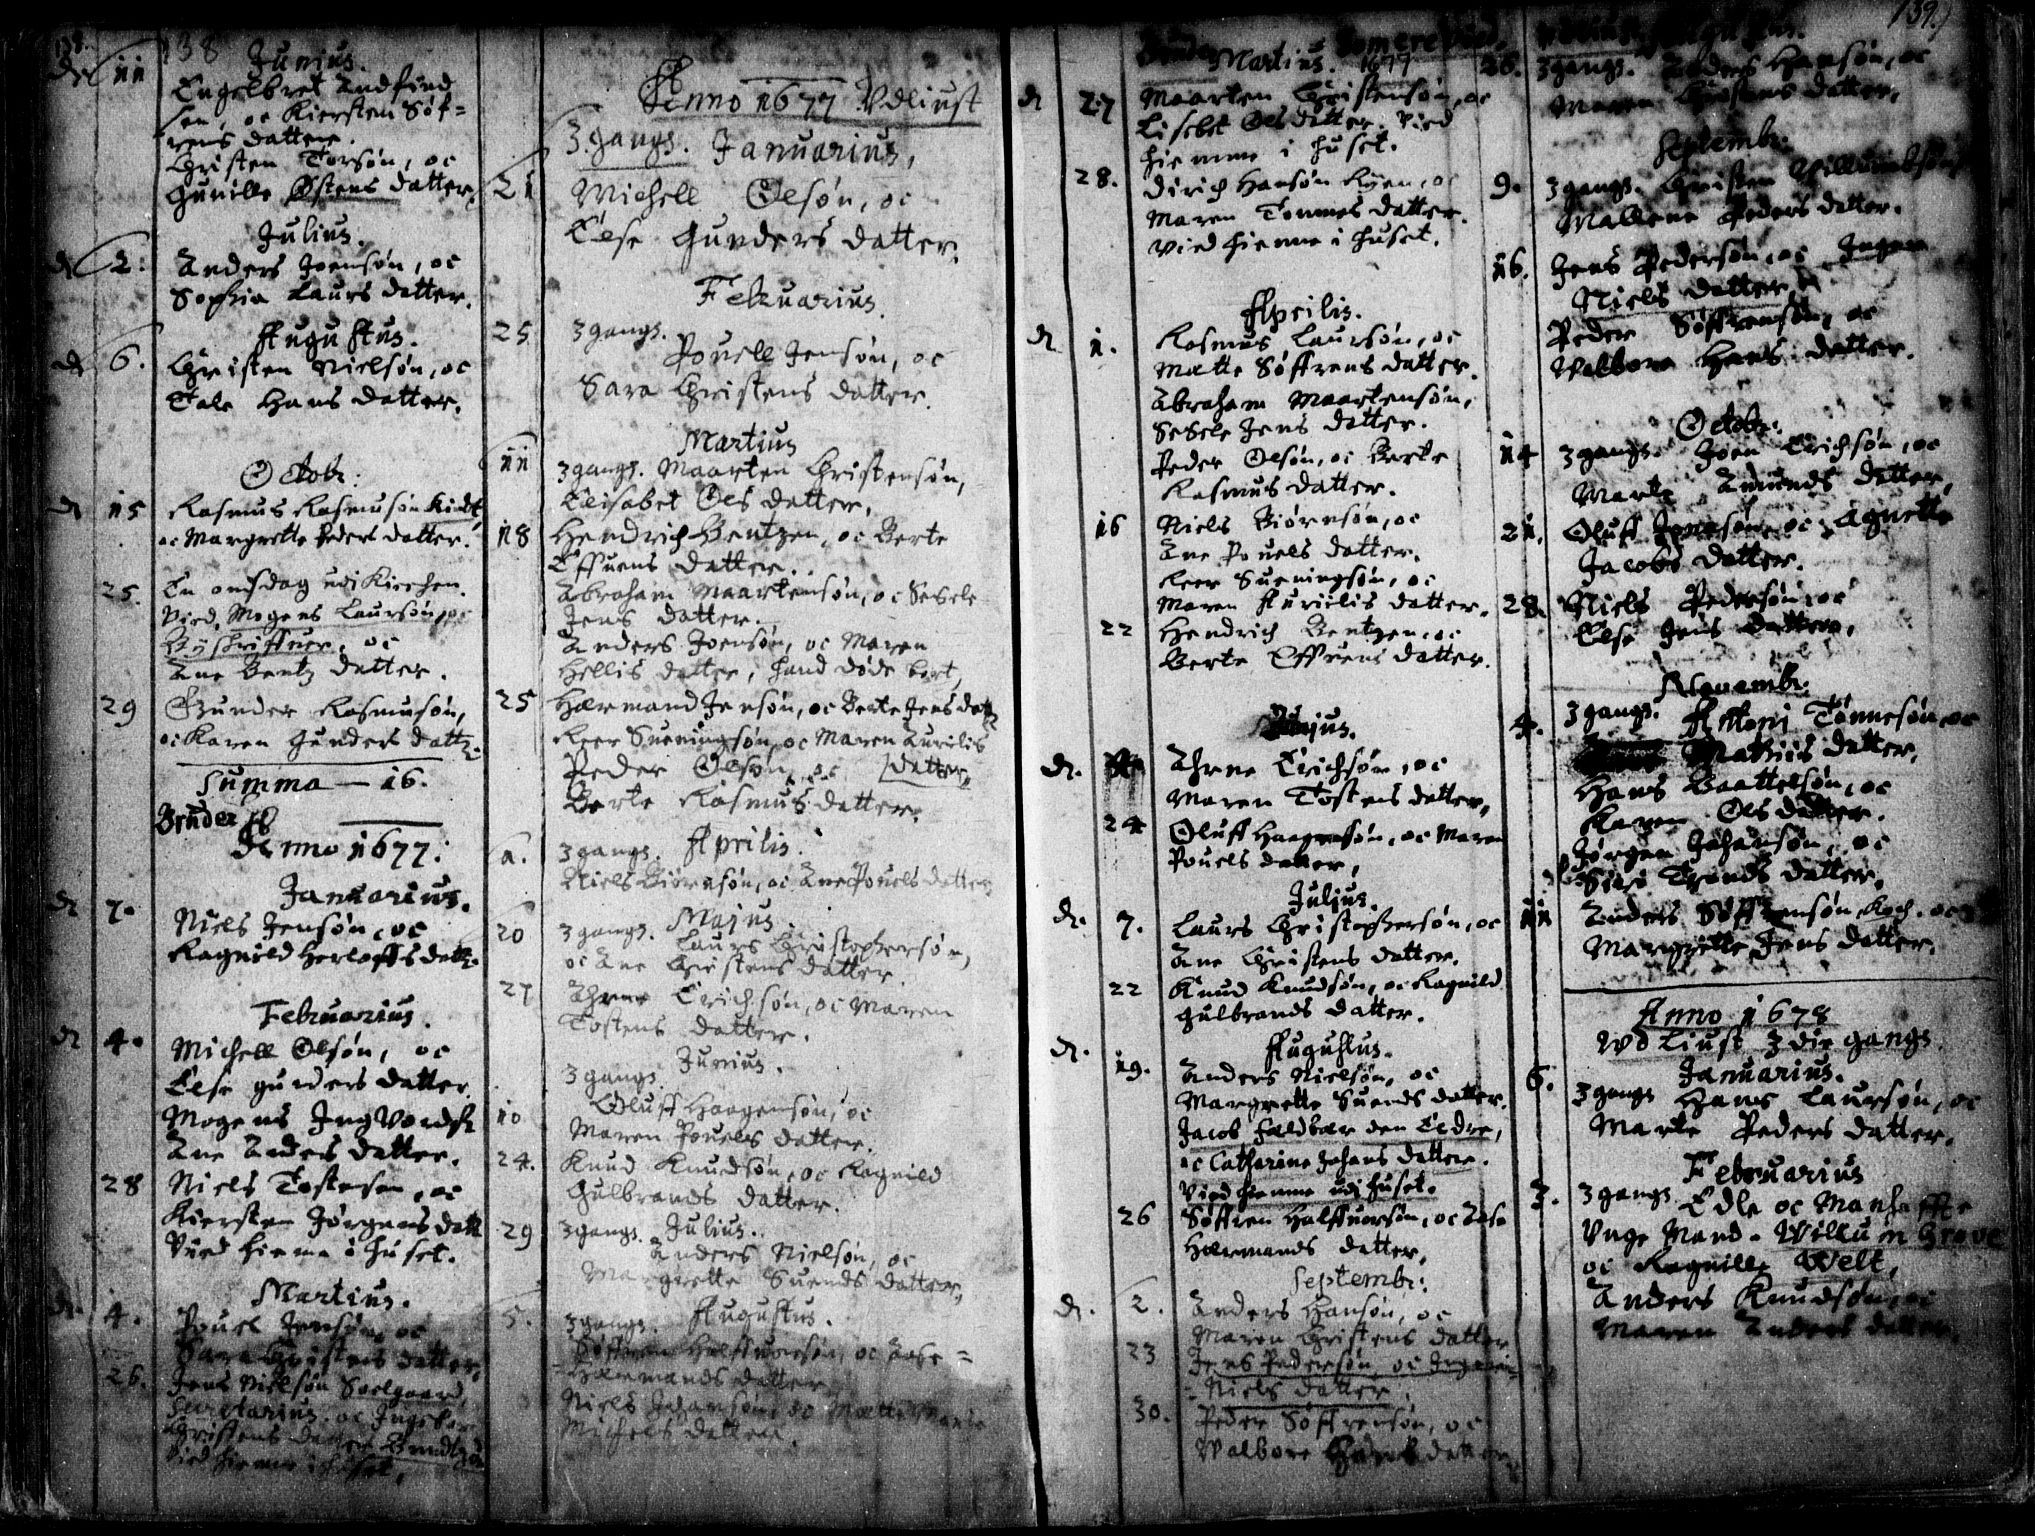 138
Junius.
d 11 Engelbret
sen, oc Kiersten Søf=
rens datter.
Christen Torsøn, oc
Gunille Østens datter,
Julius.
d 2. Anders Joensøn, oc
Sophia Laurs datter.
Augustus.
d 6. Christen Nielsøn, oc
Tale Hans datter.
Octobr:
d 15 Rasmus Rasmusøn Kindt,
oc Margrette Peders datter.
25. En onsdag udi Kirchen.
Vied, Mogens Laursøn, oc
Byskriffuer, oc
Ane Bentz datter.
29 Gunder Rasmusøn,
oc Karen Gunders datt:
Summa — 16.
Bruder
Anno 1677.
Januarius.
d 7. Niels Jensøn, oc
Ragnild Herloffs datt:
Februarius.
d 4. Michell Olsøn, oc
Else Gunders datter.
Mogens
Ane Anders datter.
28 Niels Tostensen, oc
Kiersten Jørgens datt
Vied hiemme i huset.
Martius.
d. 4. Pouel Jensøn, oc
Sara Christens datter,
26. Jens Nielsøn Soelgaard,
Secretarius. oc
Christens datter
Vied hiemme i huset,
Anno 1677 Vdliust
3 gangs. Januarius,
21 Michell Olsøn, oc
Else Gunders datter,
Februarius
25 3 gangs.
Pouell Jensøn, oc
Sara Christens datter.
Martius
11 3 gangs. Maarten Christensøn,
Elisabet Ols datter,
18 Hendrich Bentzen, oc Berte
Effuens datter.
Abraham Maartensøn, oc Sesele
Jens datter.
Anders Joensøn, oc Maren
Hellis datter, hand døde bort,
25 Hermand Jensøn, oc Berte Jens datt
Sueningsøn, oc Maren Aurilis
datter,
Peder Olsøn, oc
Berte Rasmus datter.
3 gangs. Aprilis.
1. Niels Biørnsøn, oc Ane Pouels datter
Majus
20 3 gangs. Laurs Christophersøn,
oc Ane Christens datter
27 Erichsøn, oc Maren
Tostens datter.
Junius.
3 gangs.
10 Oluff Haagensøn, oc
Maren Pouels datter.
24. Knud Knudsøn, oc Ragnild
Gulbrands datter.
29 3 gangs. Julius.
Anders Nielsøn, oc
Margrette Suends datter,
5. 3 gangs. Augustus.
Søffren Halffuorsøn, oc Aase =
=Hermands datter
Niels Johansøn, oc Mette
Michels datter.
Martius. 1677
d 27 Maarten Christensøn, oc
Lisebet Ols datter. Vied
hiemme i huset.
28. Dirich Hansøn, oc
Maren Tommes datter.
Vied hiemme i huset.
Aprilis.
d 1. Rasmus Laursøn, oc
Mette Søffrens datter.
Abraham Maartensøn,
Sesele Jens datter.
Peder Olsøn, oc Berte
Rasmus datter.
16 Niels Biørnsøn, oc
Ane Pouels datter.
Sueningsøn, oc
Maren Aurilis datter.
22 Hendrich Bentzen, oc
Berte Effuens datter.
d. Erichsøn, oc
Maren Tostens datter,
24 Oluff Haagensøn, oc Maren
Pouels datter,
Julius.
d. 7. Laurs Christophersøn, oc
Ane Christens datter.
22 Knud Knudsøn, oc Ragnild
Gulbrands datter.
Augustus.
d. 19. Anders Nielsøn, oc
Margrette Suends datter.
Jacob Faldbær den Eldre,
oc Catharina Johans datter.
Vied hiemme udi huset.
26 Søffren Halffuorsøn, oc Aase
Hermands datter,
Septembr:
d. 2. Anders Hansøn, oc
Maren Christens datter
23 Jens Pedersøn, oc
Niels datter,
30. Peder Søffrensøn, oc
Walbore Hans datter
139.
26. 3 gangs. Anders Hansøn, oc
Maren Christens datter,
Septembr:
9. 3 gangs. Christen
Peders datter.
16. Jens Pedersøn, oc
Niels datter.
Peder Søffrensøn, oc
Walbore Hans datter.
Octobr:
14 3 gangs. Joen Erichsøn, oc
Marte Amunds datter,
21. Oluff Jensøn, oc Agnette
Jacobs datter.
28. Niels Pedersøn, oc
Else Jens datter,
Novembr:
4. 3 gangs. Tønnesøn, oc
Mathiis datter,
Hans Baattelsøn, oc
Karen Ols datter.
Jørgen Johansøn, oc
Siri Tronds datter,
11 Anders Søffrensøn Koch. oc
Margrette Jens datter.
Anno 1678
Wdliust 3die gangs.
Januarius.
6. 3 gangs Hans Laursøn, oc
Marte Peders datter.
Februarius
3. 3 gangs Edle oc Manhaffte
Unge Mand. Willum Grove
oc Ragnille Welt,
Anders Knudsøn, oc
Maren Anders datter.